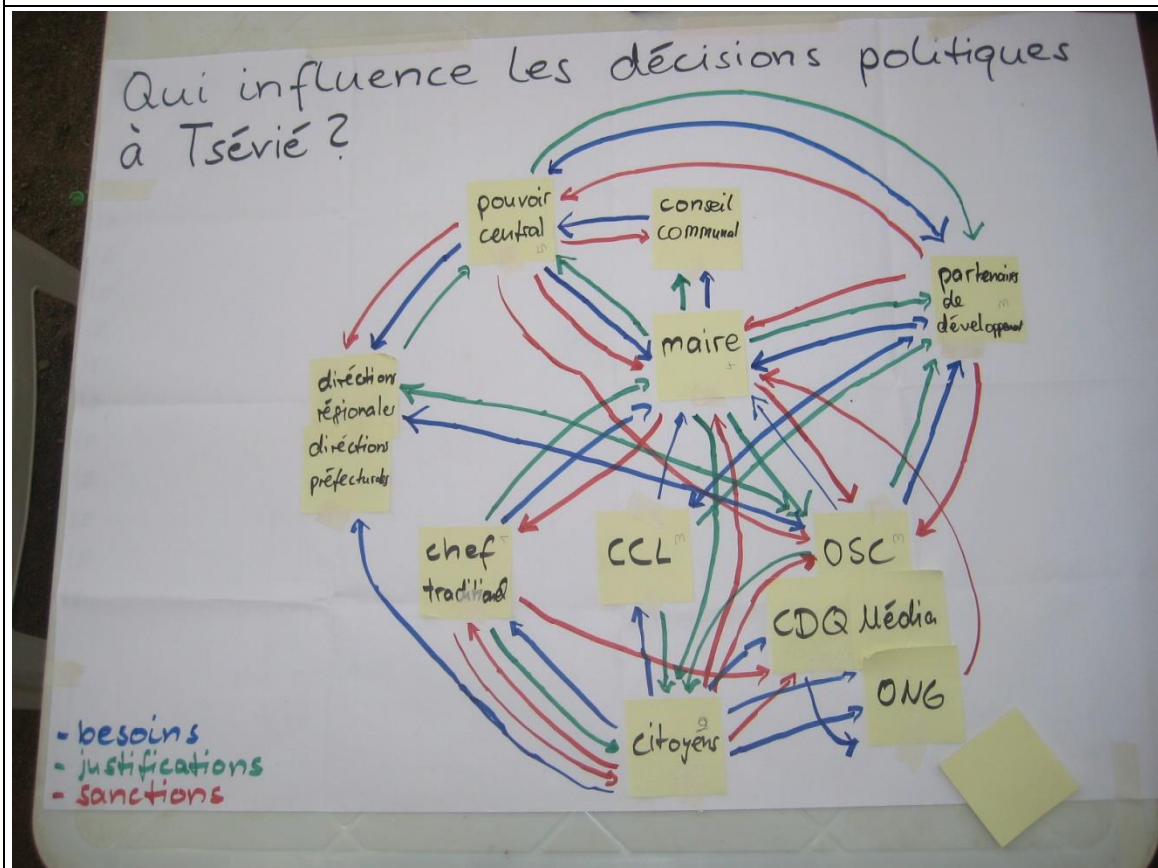 Qui influence les décisions politiques
à Tsévié?
pouvoir
central
5
conseil
communal
partenairs
de
développement
3
maire
4
diréction
régionales
diréctions
chef
traditionel
CCL
3
OSC
3
CDQ Média
ONG
citoyéns
- besoins
- justifications
- sanctions